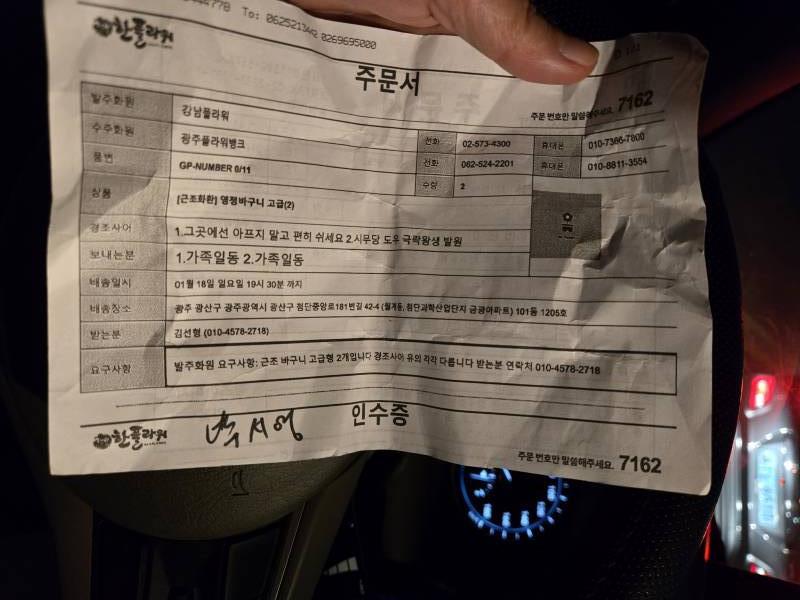 To: 062521344R 0269695000
한플라워
주문서
주문 번호만 말씀해주세요. 7162
발주화원 강남플라워
수주화원 광주플라워뱅크 전화 02-573-4300 휴대폰 010-7366-7800
품번 GP-NUMBER 0/11 전화 062-524-2201 휴대폰 010-8811-3554
수량 2
상품 [근조화환] 영정바구니 고급(2)
경조사어 1.그곳에선 아프지 말고 편히 쉬세요 2.시무당 도우 극락왕생 발원
보내는분 1.가족일동 2.가족일동
배송일시 01월 18일 일요일 19시 30분 까지
배송장소 광주 광산구 광주광역시 광산구 첨단중앙로181번길 42-4 (월계동, 첨단과학산업단지 금광아파트) 101동 1205호
받는분 김선형 (010-4578-2718)
요구사항 발주화원 요구사항: 근조 바구니 고급형 2개입니다 경조사어 유의 각각 다릅니다 받는분 연락처 010-4578-2718
인수증
한플라워
주문 번호만 말씀해주세요. 7162